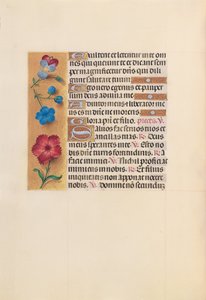 Exultent et letentur in te om
nes qui querunt te et dicant sem
per magnificetur dñs qui dili
gunt salutare tuum.
Ego vero egenus et pauper
sum deus adiuva me.
Adiutor meus et liberator me
us es tu dñe ne moreris.
Gloria patri et filio.
Salvos fac servos tuos et
ancillas tuas. Deus
meus sperantes in te. Esto no
bis dñe turris fortitudinis. A
facie inimici. Nichil proficiat
inimicus in nobis. Et filius
iniquitatis non apponat noce
nobis. Domine no secundum